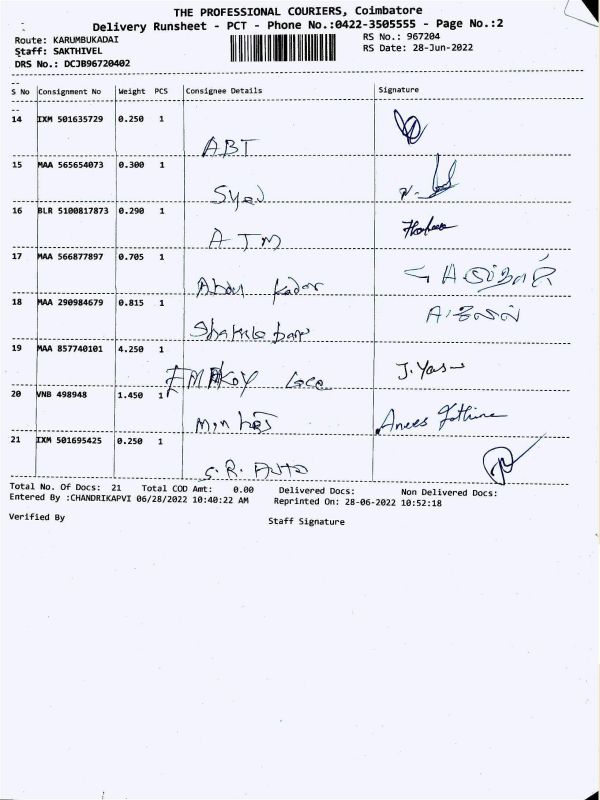 THE PROFESSIONAL COURIERS, Coimbatore
Delivery Runsheet - PCT - Phone No.:0422-3505555 - Page No.:2
Route: KARUMBUKADAI RS No.: 967204
Staff: SAKTHIVEL RS Date: 28-Jun-2022
DRS No.: DCJB96720402
S No Consignment No Weight PCS Consignee Details Signature
14 IXM 501635729 0.250 1
ABT
15 MAA 565654073 0.300 1
Syed
16 BLR 5100817873 0.290 1
ATM
17 MAA 566877897 0.705 1
Abdul Kadar
18 MAA 290984679 0.815 1
19 MAA 857740101 4.250 1
J. Yas
20 VNB 498948 1.450 1
Anees Fathima
21 IXM 501695425 0.250 1
S.R. Auto
Total No. Of Docs: 21 Total COD Amt: 0.00 Delivered Docs: Non Delivered Docs:
Entered By :CHANDRIKAPVI 06/28/2022 10:40:22 AM Reprinted On: 28-06-2022 10:52:18
Verified By Staff Signature